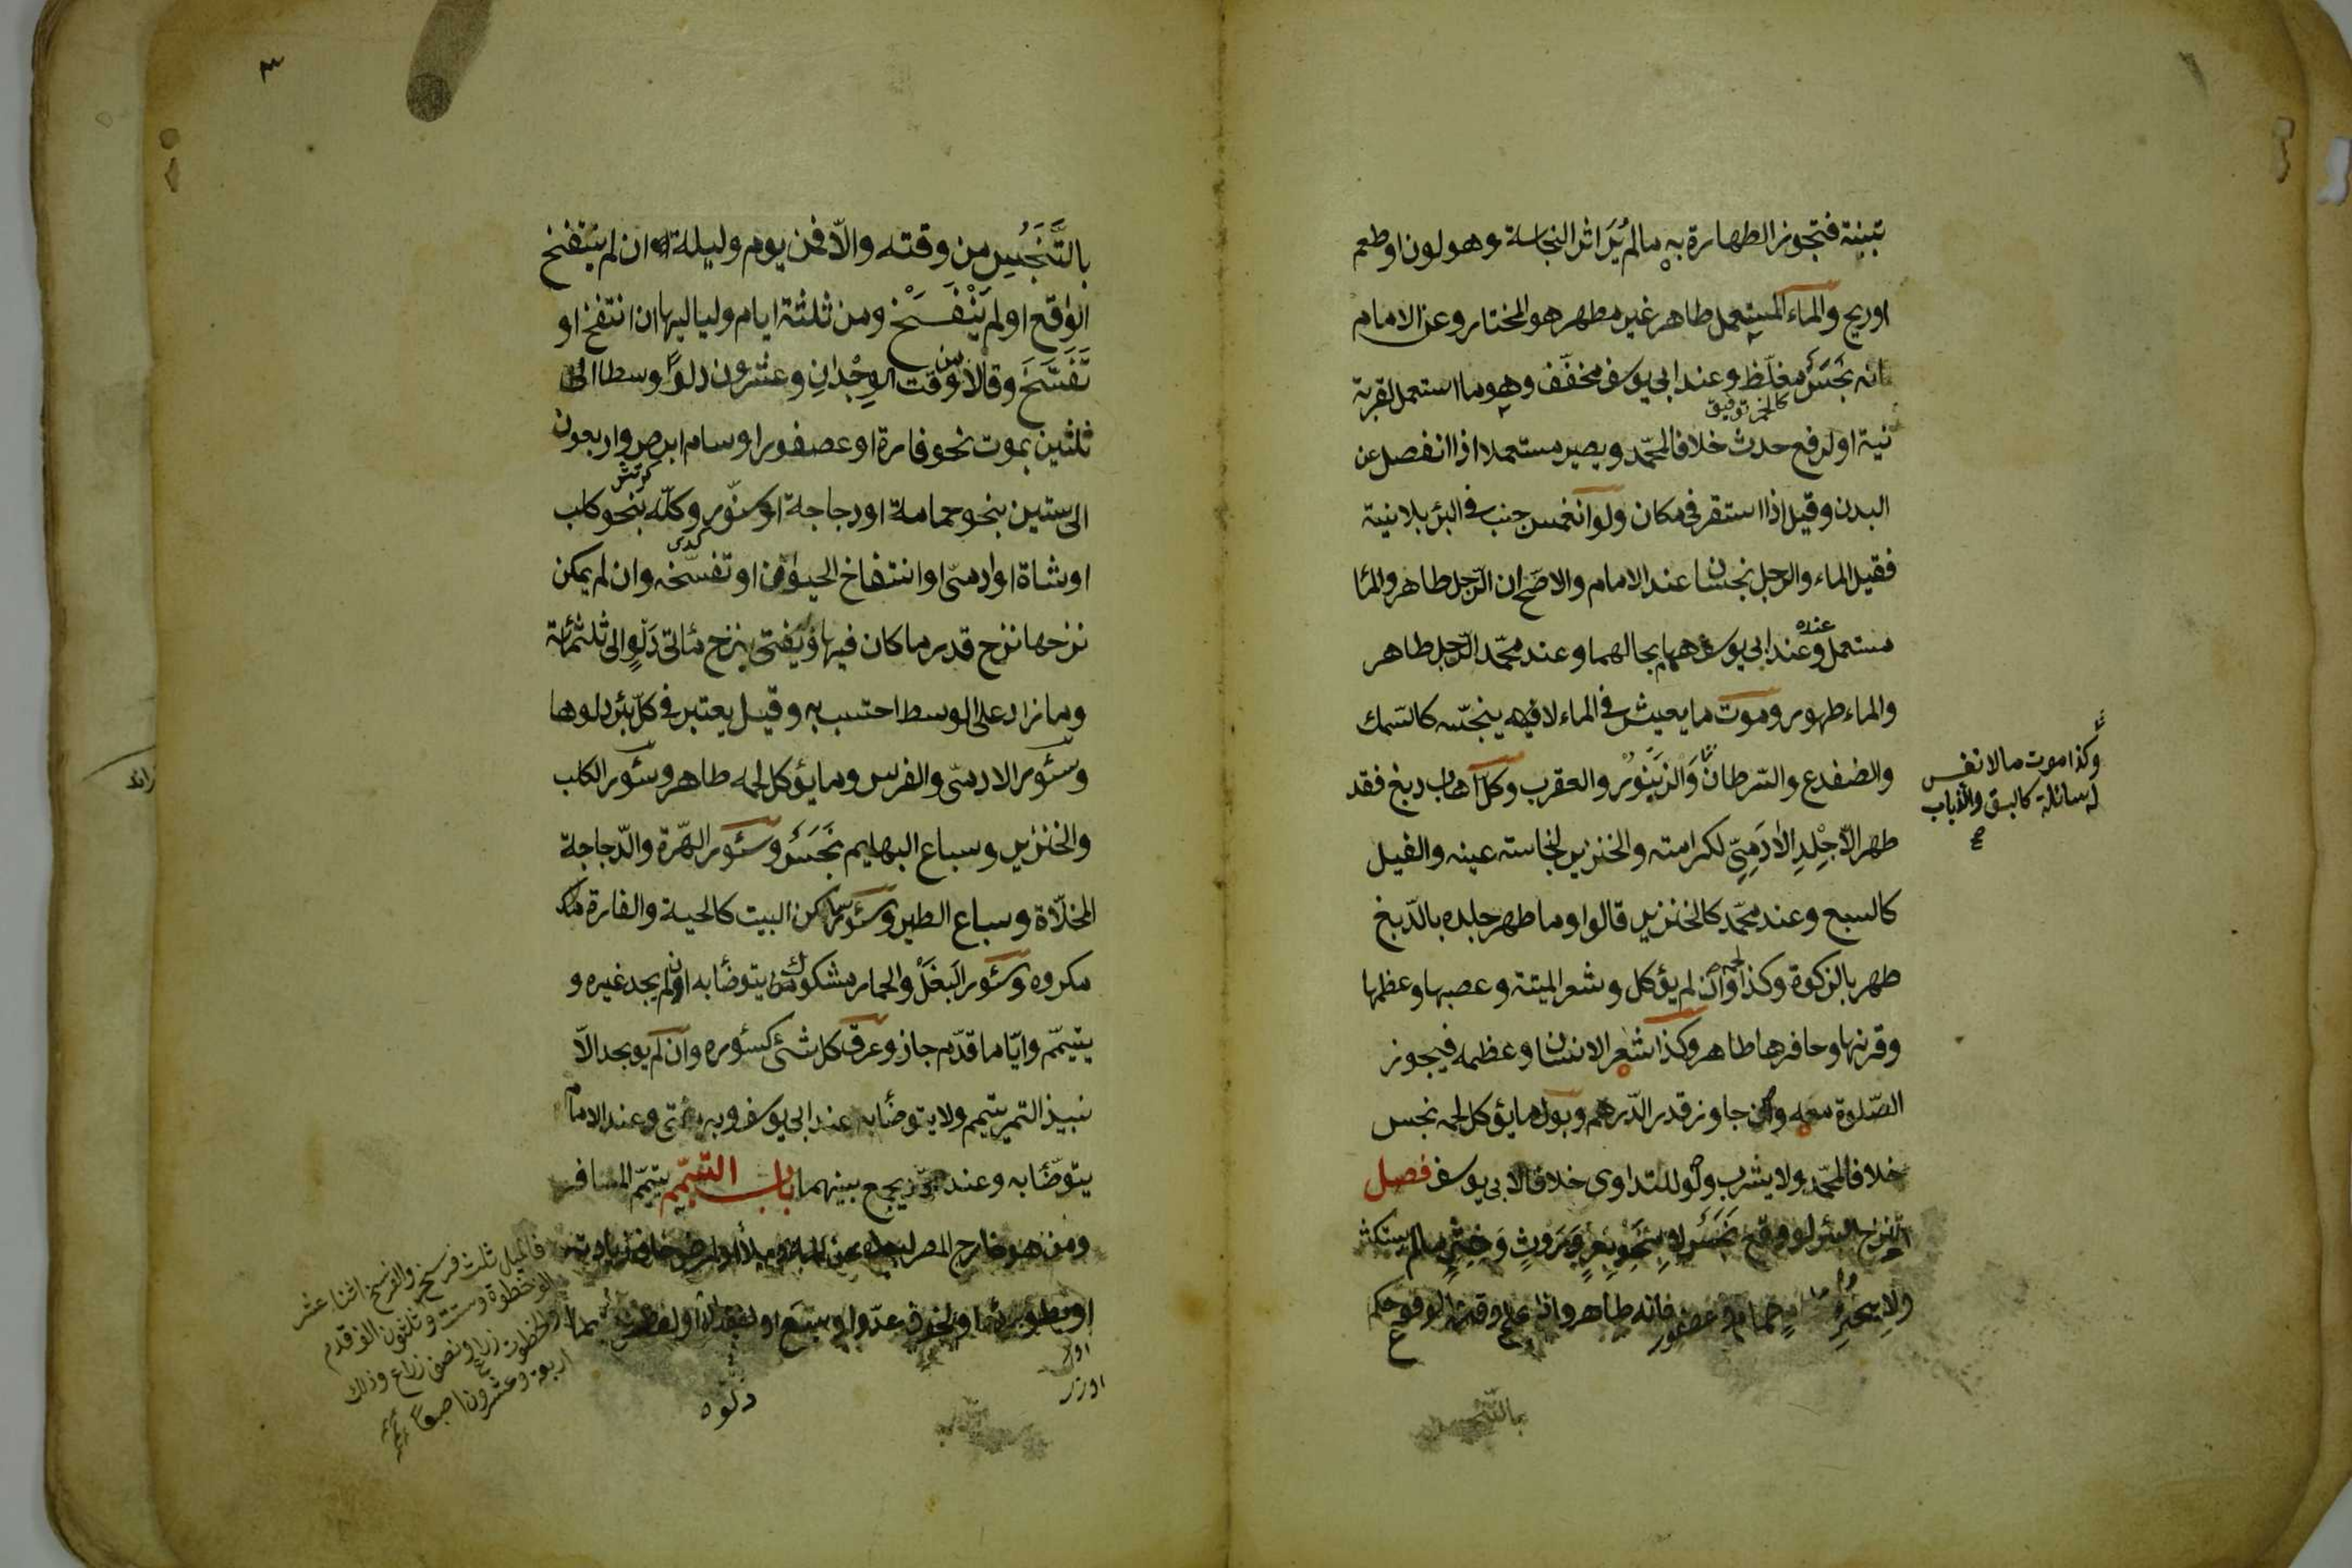 تبنة فتجوز الطهارة به ما لم يُرَ اثر النجاسة وهو لون او طعم
او ريح والماء المستعمل طاهر غير مطهر هو المختار وعن الامام
انه نَجَسٌ مغلّظ وعند ابي يوسف مخفّف وهو ما استعمل لقربة
نية او لرفع حدث خلافا لمحمّد ويصير مستعملا اذا انفصل عن
البدن وقيل اذا استقر في مكان ولو انغمس جنب في البئر بلا نية
فقيل الماء والرجل نجسان عند الامام والاصح ان الرّجل طاهر والماء
مستعمل عنده وعند ابي يوسف هما بحالهما وعند محمّد الرّجل طاهر
والماء طهور وموت ما يعيش في الماء لا ينجّسه كالسّمك
والضفدع والسّرطان وَالزنبور والعقرب وكل اهاب دبغ فقد
طهر الّا جِلْدِ الاٰدَمِيّ لكرامته والخنزير لنجاسته عينه والفيل
كالسبع وعند محمّد كالخنزير قالوا وما طهر جلده بالدّبغ
طهر بالزكوة وكذا لحمه وان لم يؤكل وشعر الميتة وعصبها وعظمها
وقرنها وحافرها طاهر وكذا شعر الانسان وعظمه فيجوز
الصّلوة معه وان جاوز قدر الدّرهم وبول ما يؤكل لحمه نجس
خلافا لمحمّد ولا يشرب ولو للتداوى خلافا لابي يوسف فصل
تنزح البئر لوقوع نَجَسٍ لا بِنَحْوِ بَعرٍ وَرَوثٍ وَخِثْيٍ ما لم يستكثر
ولا بخرء حمام وعصفور فانه طاهر واذا علم وقت الوقوع حكم
بالتّنجس
وكذا موت ما لا نفس
له سائلة كالبق والذباب
صح
٣
بالتَّنَجُّسِ من وقته والّا فمن يوم وليلة ان لم ينتفخ
الواقع او لم يَتَفَسَّخ ومن ثلثة ايام ولياليها ان انتفخ او
تَفَسَّخَ وقالا من وقت الوِجْدَانِ وعشرون دلوًا وسطا الى
ثلثين بموت نحو فارة او عصفور او سام ابرص واربعون
الى ستين بنحو حمامة او دجاجة او سنّور وكلّه بنحو كلب
او شاة او ادمىّ او انتفاخ الحيوان او تفسّخه وان لم يمكن
نزحها نزح قدر ما كان فيها ويُفتى بنزح مائتى دَلوٍ الى ثلثمائة
وما زاد على الوسط احتسب به وقيل يعتبر في كلّ بئر دلوها
وسئور الادمىّ والفرس وما يؤكل لحمه طاهر وسئور الكلب
والخنزير وسباع البهايم نَجَسٌ وسئور الهّرة والدّجاجة
المخلّاة وسباع الطير وسئور سواكن البيت كالحية والفارة
مكروه وسئور البَغَل والحمار مشكوك يتوضأ به ان لم يجد غيره و
يتيمّم وايّا ما قدّم جاز وعرق كل شئ كسئوره وان لم يوجد الّا
نبيذ التمر يتيمم ولا يتوضأ به عند ابي يوسف وبه يفتى وعند الامام
يتوضّأ به وعند محمّد يجمع بينهما باب التيمّم يتيمّم المسافر
ومن هو خارج المصر لبعده عن الماء ميلا او لمرض خاف زيادته
او بطؤ برئه او لخوف عدّو او سبع او لفقد آلة
دلوه
فالميل ثلث فرسخ والفرسخ اثنا عشر
الف خطوة وست وثلثون الف قدم
والخطوة زراع ونصف زراع وذلك
اربعة وعشرون اصبعًا